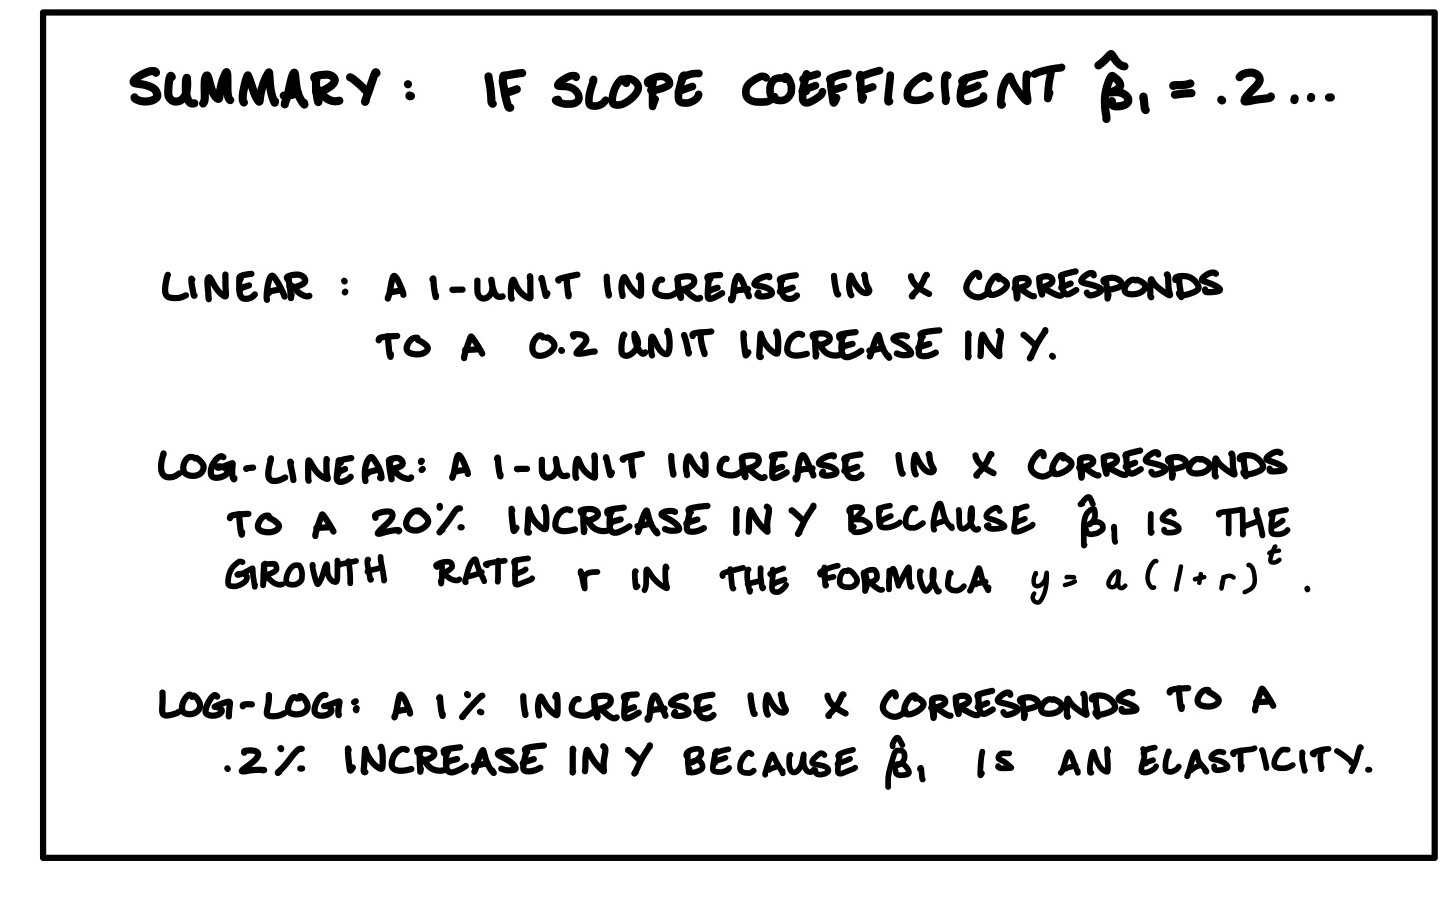 SUMMARY: IF SLOPE COEFFICIENT β̂₁ = .2...
LINEAR: A 1-UNIT INCREASE IN X CORRESPONDS
TO A 0.2 UNIT INCREASE IN Y.
LOG-LINEAR: A 1-UNIT INCREASE IN X CORRESPONDS
TO A 20% INCREASE IN Y BECAUSE β̂₁ IS THE
GROWTH RATE r IN THE FORMULA y = a(1+r)ᵗ.
LOG-LOG: A 1% INCREASE IN X CORRESPONDS TO A
.2% INCREASE IN Y BECAUSE β̂₁ IS AN ELASTICITY.